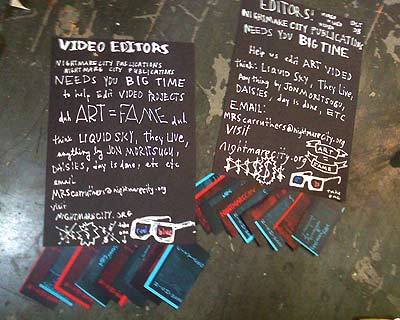 VIDEO EDITORS
NIGHTMARECITY PUBLICATIONS
NIGHTMARE CITY PUBLICATIONS
NEEDS YOU BIG TIME
to help Edit VIDEO PROJECTS
duh ART = FAME duh
think LIQUID SKY, they LIVE,
anything by JON MORITSUGU,
DAISIES, day is done, etc etc
email
MRScarruthers@nightmarecity.org
visit
NIGHTMARECITY.ORG
EDITORS
NIGHTMARE CITY PUBLICATIONS
NEEDS YOU BIG TIME
Help us edit ART VIDEO
think: LIQUID SKY, They Live,
Anything by JON MORITSUGU,
DAISIES, day is done, ETC
EMAIL:
MRScarruthers@nightmarecity.org
VISIT
Nightmarecity.org
ART
=
FAME
take one